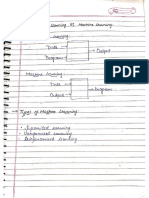 Learning VS Machine Learning
Learning
Data
Output
Program
Machine Learning
Data
Program
Output
Types of Machine Learning
• Supervised Learning
• Unsupervised Learning
• Reinforcement Learning